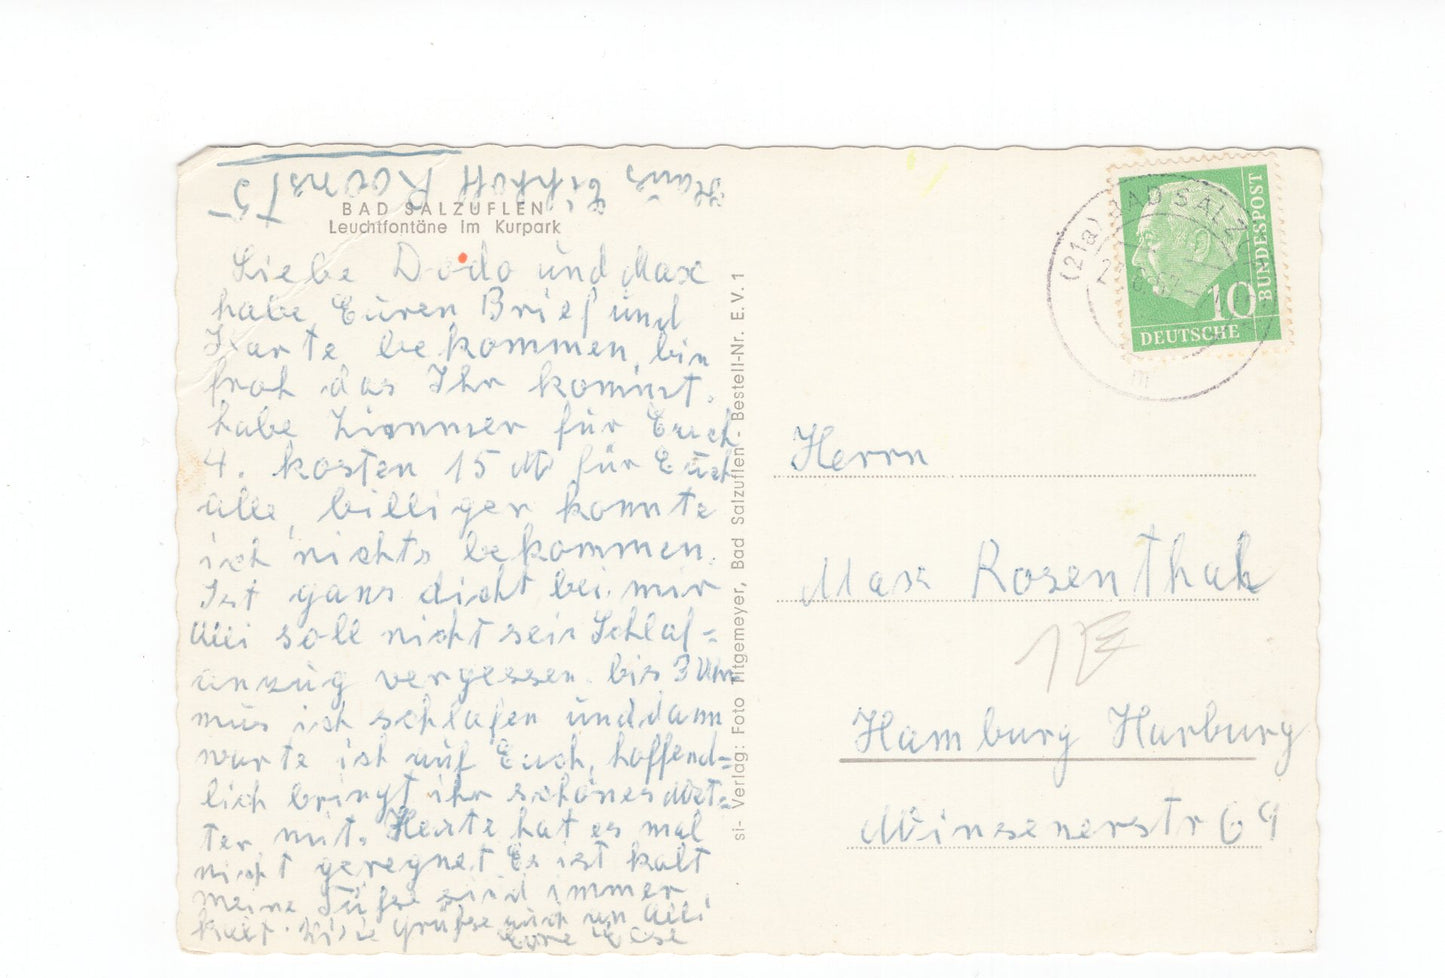 Haus Eikhoff Roonst
15
BAD SALZUFLEN
Leuchtfontäne im Kurpark
Liebe Dodo und Max
habe Euren Brief und
Karte bekommen, bin
froh das Ihr kommt.
habe Zimmer für Euch
4. kosten 15 M für Euch
alle, billiger konnte
ich nichts bekommen.
Ist gans dicht bei mir
Alli soll nicht sein Schlaf=
anzug vergessen. bis 3 Uhr
mus ich schlafen und dann
warte ich auf Euch, hoffend=
lich bringt ihr schönes Wet=
ter mit. Heute hat es mal
nicht geregnet Es ist kalt
meine Füße sind immer
kalt. Viele Grüße auch an Alli
Eure Else
si- Verlag: Foto Fitgemeyer, Bad Salzuflen - Bestell-Nr. E.V. 1
(21a) BAD SALZ
m
10
DEUTSCHE
BUNDESPOST
Herrn
Max Rosenthal
Hamburg Harburg
Winsenerstr 69